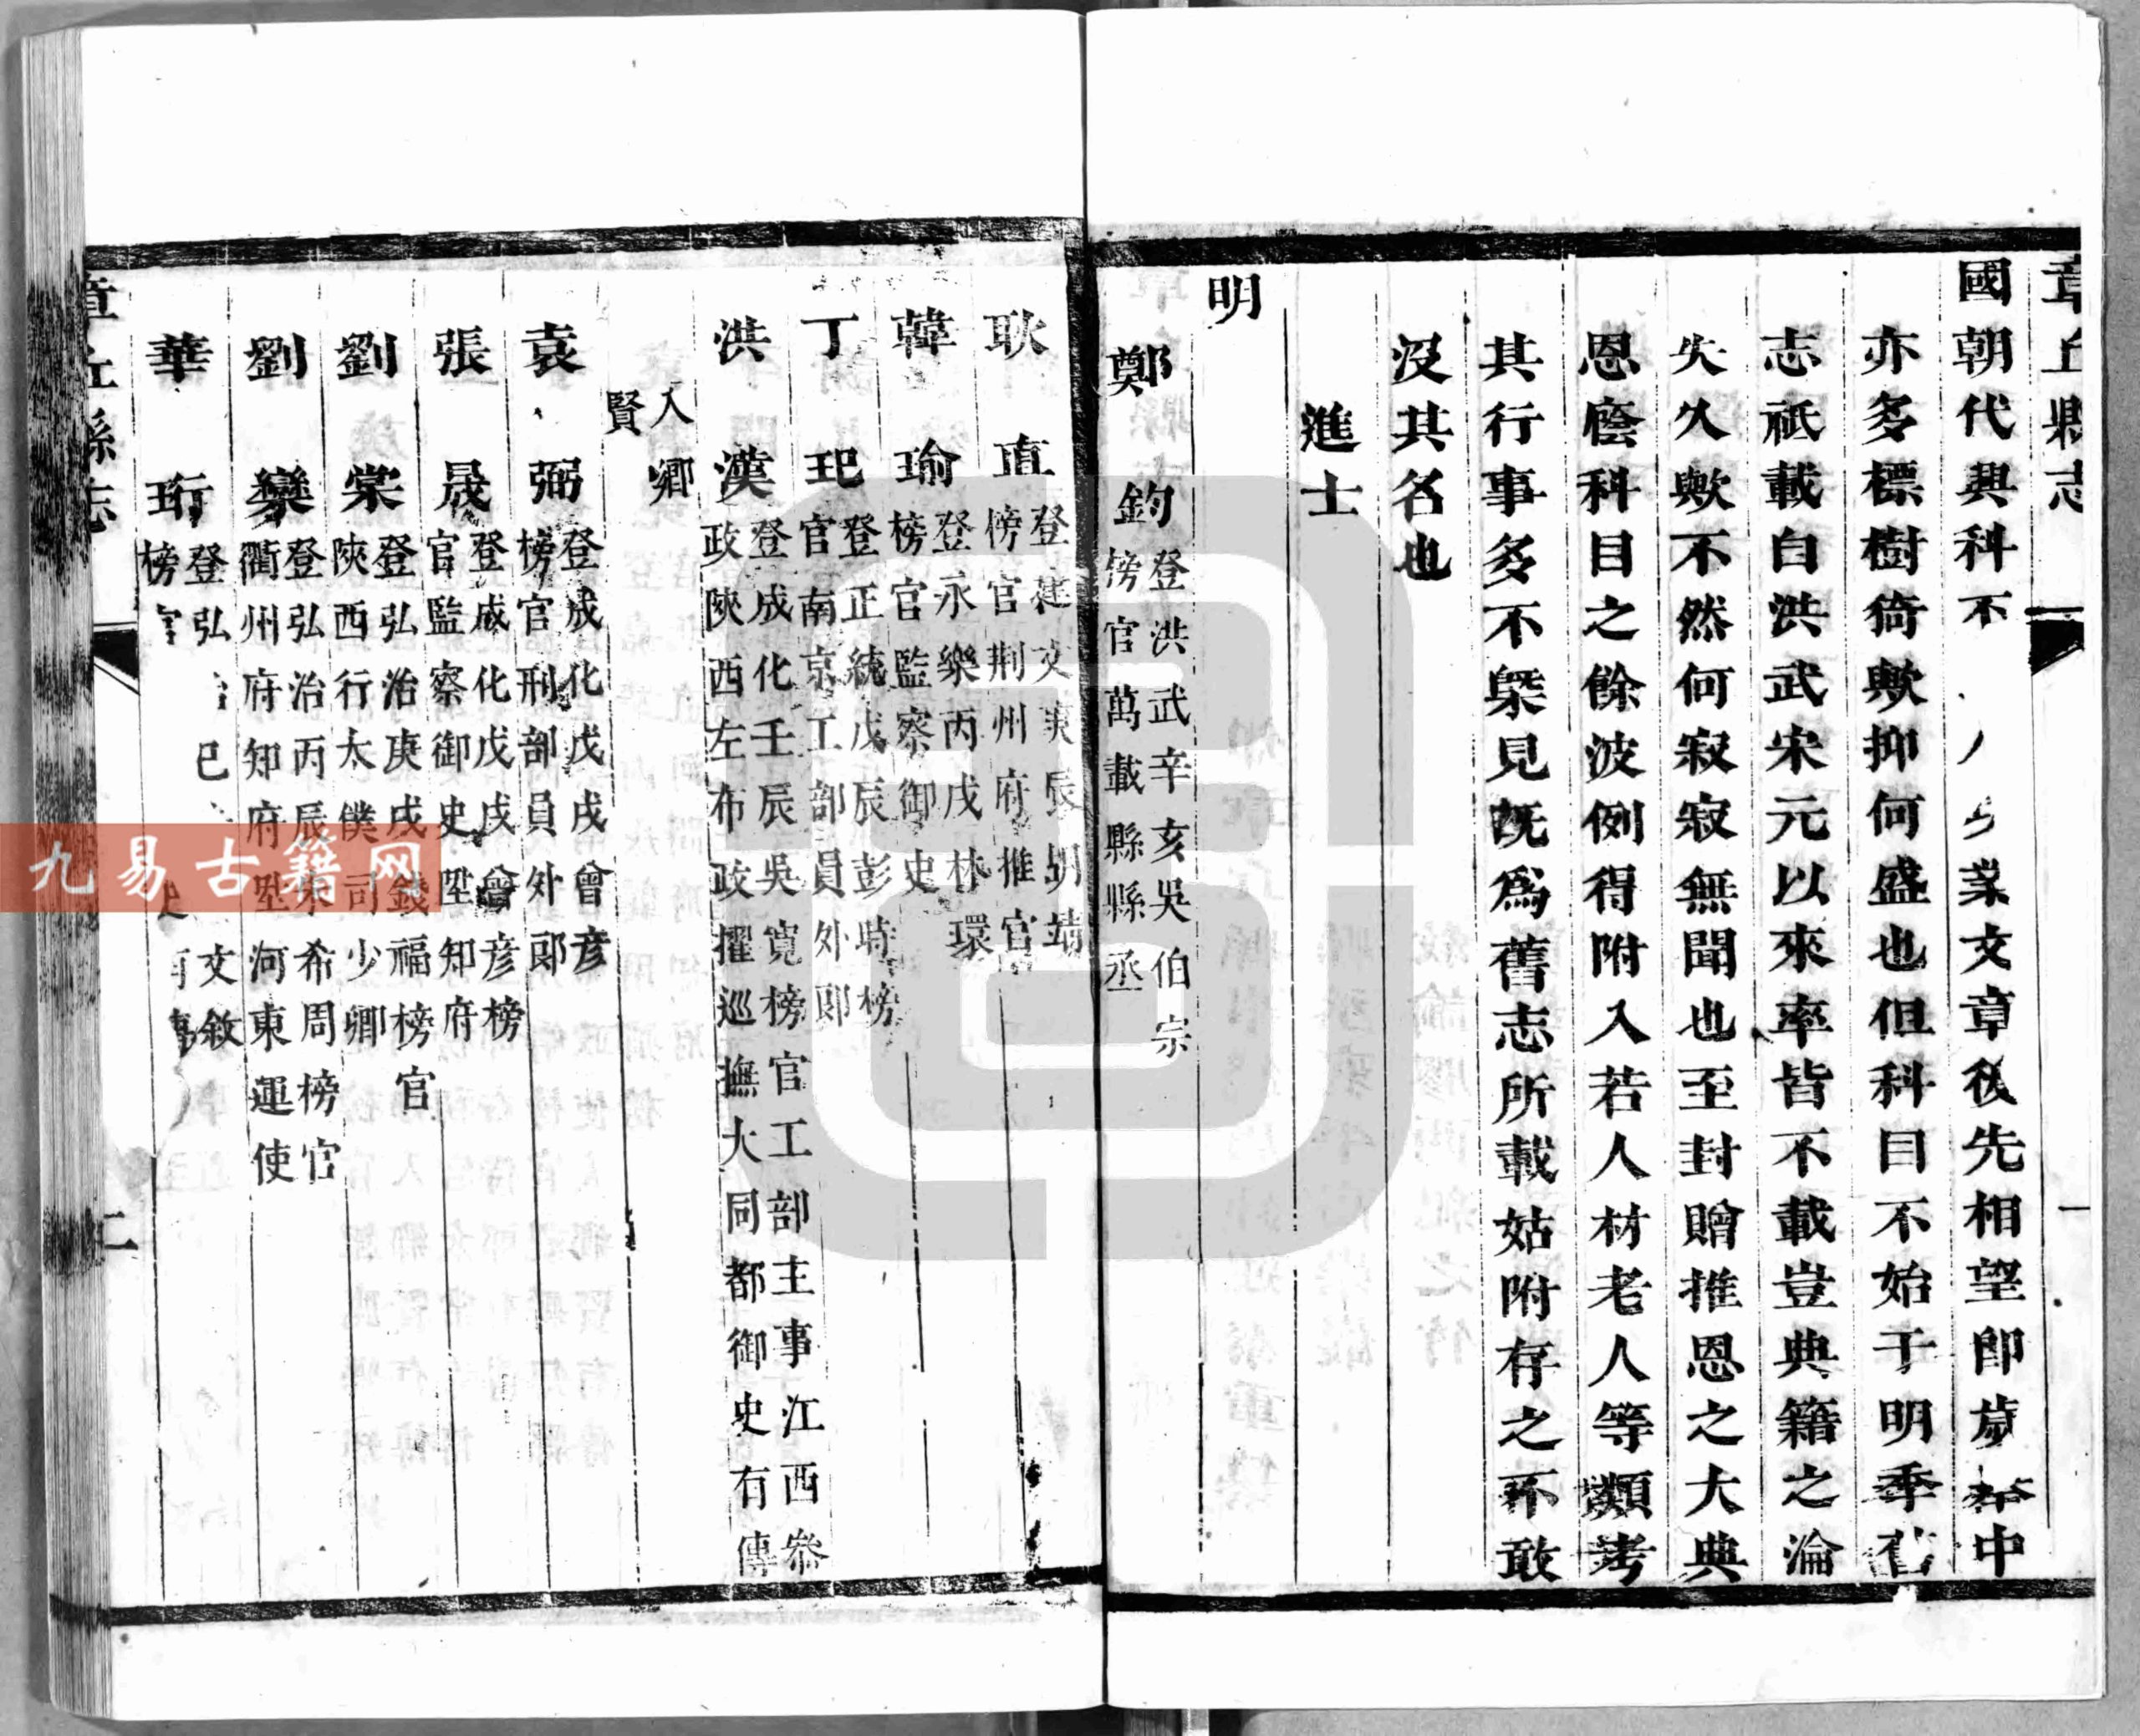 章丘縣志
一
國朝代興科不業文章後先相望卽歲中
亦多標樹猗歟抑何盛也但科目不始于明季舊
志祇載自洪武宋元以來率皆不載豈典籍之淪
失久歟不然何寂寂無聞也至封贈推恩之大典
恩廕科目之餘波例得附入若人材老人等類考
其行事多不槩見旣爲舊志所載姑附存之不敢
沒其名也
進士
明
鄭鈞登洪武辛亥吳伯宗
榜官萬載縣縣丞
耿直登建文庚辰胡靖
榜官荆州府推官
韓瑜登永樂丙戌林環
榜官監察御史
丁玘登正統戊辰彭時榜
官南京工部員外郎
洪漢登成化壬辰吳寬榜官工部主事江西叅
政陝西左布政擢巡撫大同都御史有傳
入鄉
賢
袁弼登成化戊戌曾彥
榜官刑部員外郎
張晟登成化戊戌曾彥榜
官監察御史陞知府
劉棠登弘治庚戌錢福榜官
陝西行太僕司少卿
劉欒登弘治丙辰朱希周榜官
衢州府知府陞河東運使
華珩登弘治巳文敘
榜官
章丘縣志
二
九易古籍网